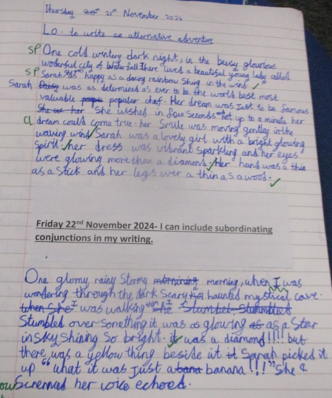 Thursday 21st November 2024
L.o. to write an alternative adventure
SP One cold wintery dark night, in the busy glowious
woderful city of there lived a beautiful young lady called
SP Sarah happy as a daring rainbow Shing in the wind
Sarah was as determind as ever to be the world best most
valuable popular chef. Her dream was just to be famous
She wished in four seconds let up to a minute her
cl dream could come true. her Smile was moving gently in the
wowing wind Sarah was a lovely girl with a bright glowing
Spirit. her dress was vibrant Sparkling and her eyes
were glowing more than a diamond. Her hand was a thin
as a Stick and her legs were a thin as a wood.
Friday 22nd November 2024- I can include subordinating
conjunctions in my writing.
One glomy rainy Stormy morning, when I was
wondering through the dark Scary haunted mystical cave
when She I was walking She
Stumbled over Something it was so glowing as a Star
in sky shiang So bright. it was a diamond!!!! but
there was a yellow thing beside it Sarah picked it
up "what it was just a banana!!!" She
Screamed her voice echoed.